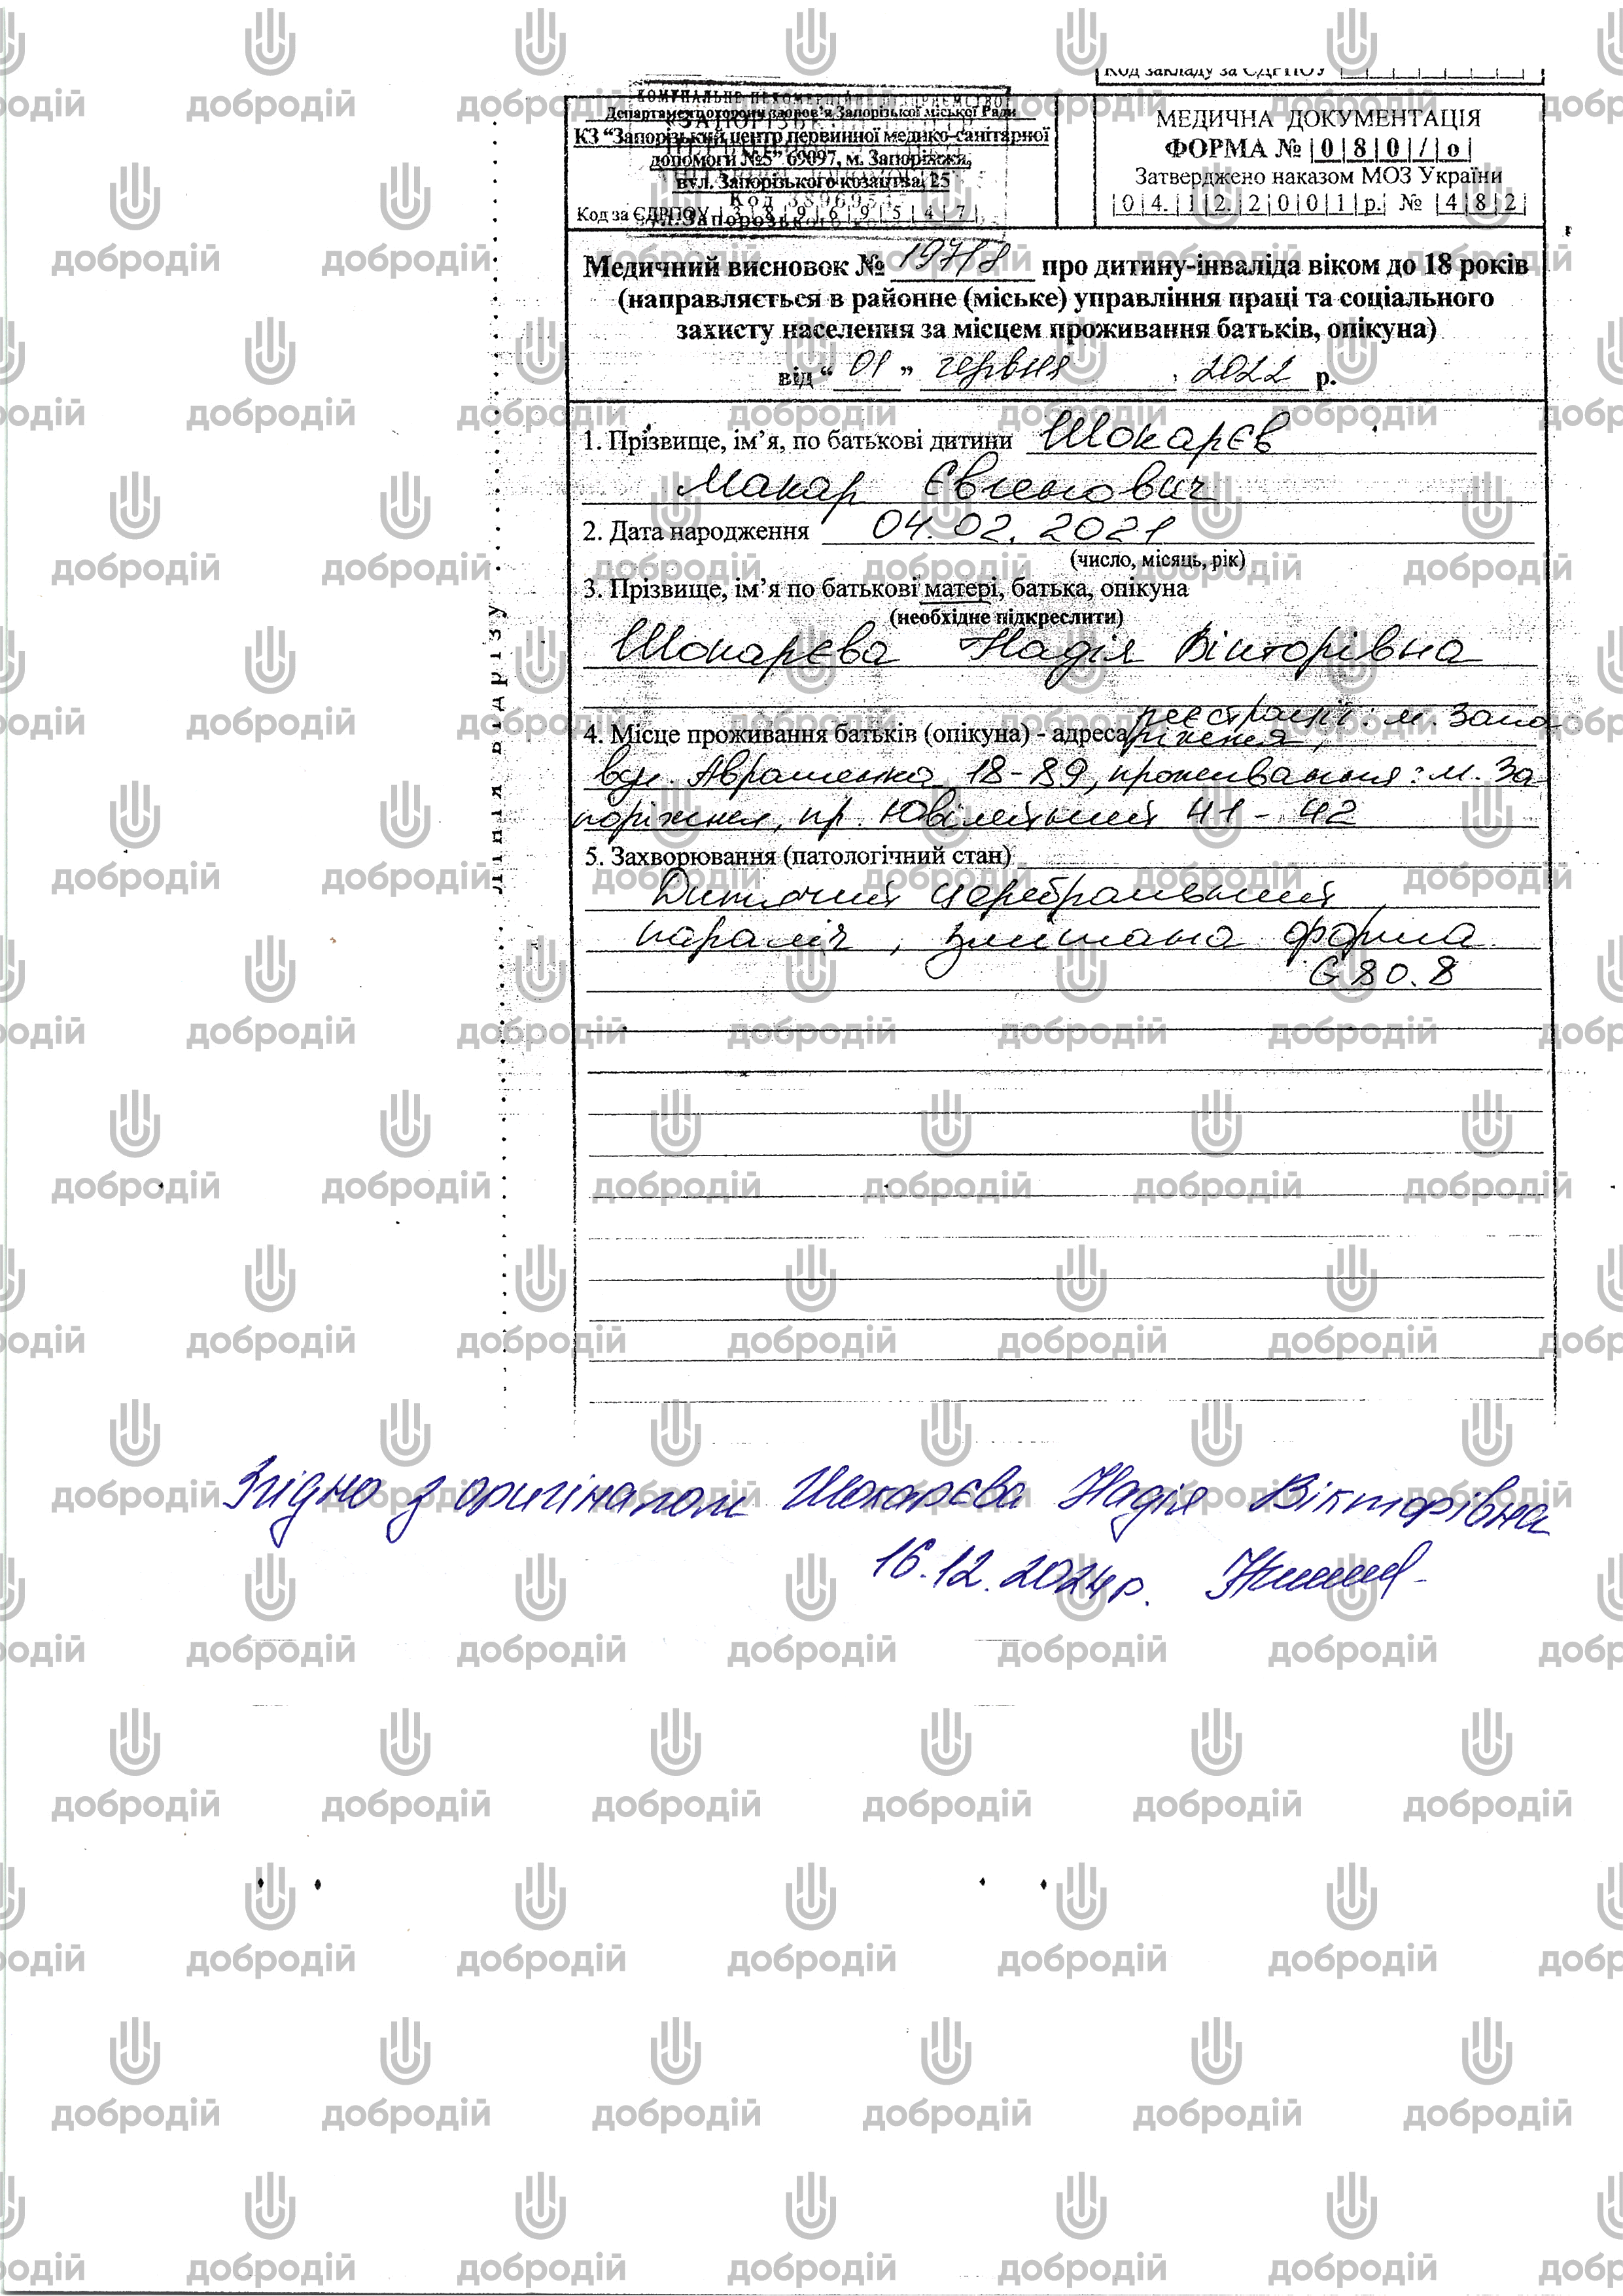 Код закладу за ЄДРПОУ
КОМУНАЛЬНЕ НЕКОМЕРЦІЙНЕ ПІДПРИЄМСТВО
Департамент охорони здоров'я Запорізької міської Ради
КЗ “Запорізький центр первинної медико-санітарної
допомоги №5” 69097, м. Запоріжжя,
вул. Запорізького козацтва, 25
Код за ЄДРПОУ |3|8|9|6|9|5|4|7|
МЕДИЧНА ДОКУМЕНТАЦІЯ
ФОРМА № |0|8|0|/|о|
Затверджено наказом МОЗ України
|0|4.|1|2.|2|0|0|1|р.| № |4|8|2|
Медичний висновок № 197/8 про дитину-інваліда віком до 18 років
(направляється в районне (міське) управління праці та соціального
захисту населення за місцем проживання батьків, опікуна)
від “01” червня, 2022 р.
1. Прізвище, ім’я, по батькові дитини Шокарєв
Макар Євгенович
2. Дата народження 04.02.2021
(число, місяць, рік)
3. Прізвище, ім’я по батькові матері, батька, опікуна
(необхідне підкреслити)
Шокарєва Надія Вікторівна
4. Місце проживання батьків (опікуна) - адреса реєстрації: м. Запо
ріжжя,
вул. Авраменка 18-89, проживання: м. За
поріжжя, пр. Ювілейний 41 - 42
5. Захворювання (патологічний стан)
Дитячий церебральний
параліч, змішана форма
G 80.8
Лінія відрізу
Згідно з оригіналом Шокарєва Надія Вікторівна
16.12.2024р.
добродій